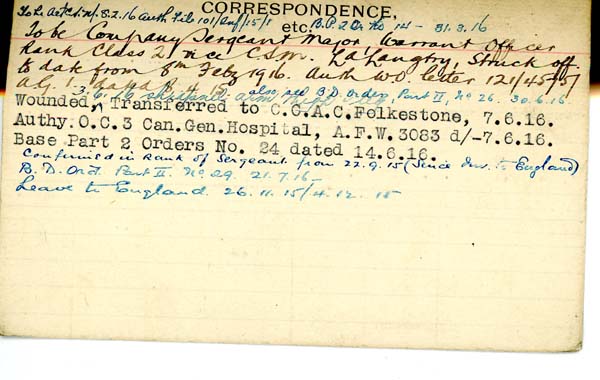 CORRESPONDENCE,
To be Act C.S.M. 8.2.16 Auth Lib 101/Inf/15/1 etc. B.P.2 O. No 14 - 31.3.16
To be Company Sergeant Major, Warrant Officer
Rank Class 2, vice C.S.M. Lalangtry, Struck off
to date from 8th Feb 1916. Auth W.O. letter 121/
3.6.16 also see B.D. Orders, Part II, No 26. 30.6.16.
Wounded, Transferred to C.C.A.C. Folkestone, 7.6.16.
Authy. O.C. 3 Can. Gen. Hospital, A.F.W. 3083 d/-7.6.16.
Base Part 2 Orders No. 24 dated 14.6.16.
Confirmed in Rank of Sergeant from 22.9.15 (Since Inv. to England)
B.D. Ord. Part II. No 29. 21.7.16
Leave to England. 26.11.15/4.12.15